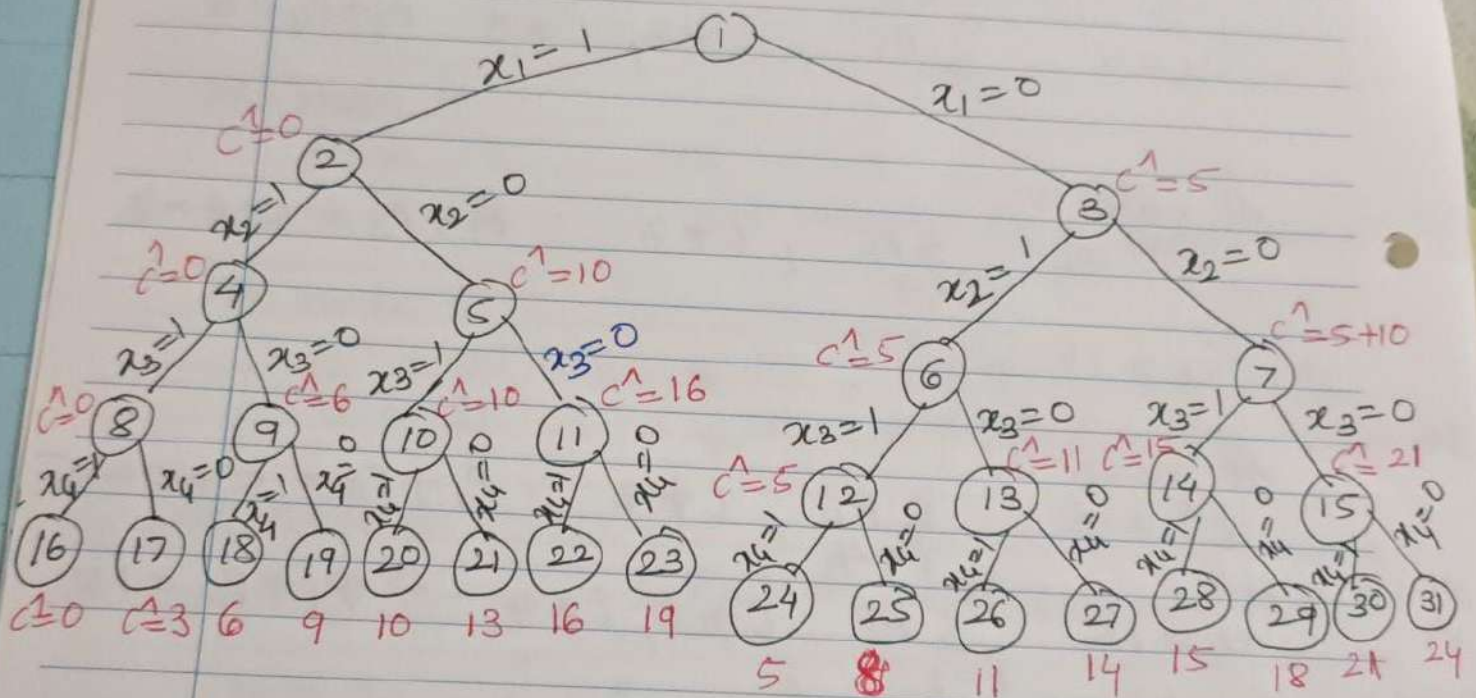 1
x₁=1
x₁=0
ĉ=0
2
ĉ=5
3
x₂=1
x₂=0
x₂=1
x₂=0
ĉ=0
4
ĉ=10
5
ĉ=5
6
ĉ=5+10
7
x₃=1
x₃=0
x₃=1
x₃=0
x₃=1
x₃=0
x₃=1
x₃=0
ĉ=0
8
ĉ=6
9
ĉ=10
10
ĉ=16
11
ĉ=5
12
ĉ=11
13
ĉ=15
14
ĉ=21
15
x₄=1
x₄=0
x₄=1
x₄=0
x₄=1
x₄=0
x₄=1
x₄=0
x₄=1
x₄=0
x₄=1
x₄=0
x₄=1
x₄=0
x₄=1
x₄=0
16 17 18 19 20 21 22 23 24 25 26 27 28 29 30 31
ĉ=0 ĉ=3 6 9 10 13 16 19 5 8 11 14 15 18 21 24